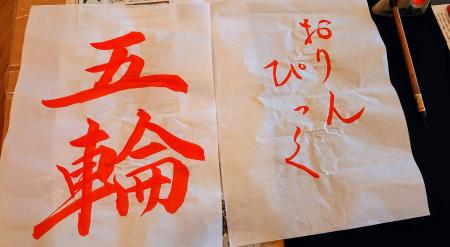 おりん
ぴっく
五輪